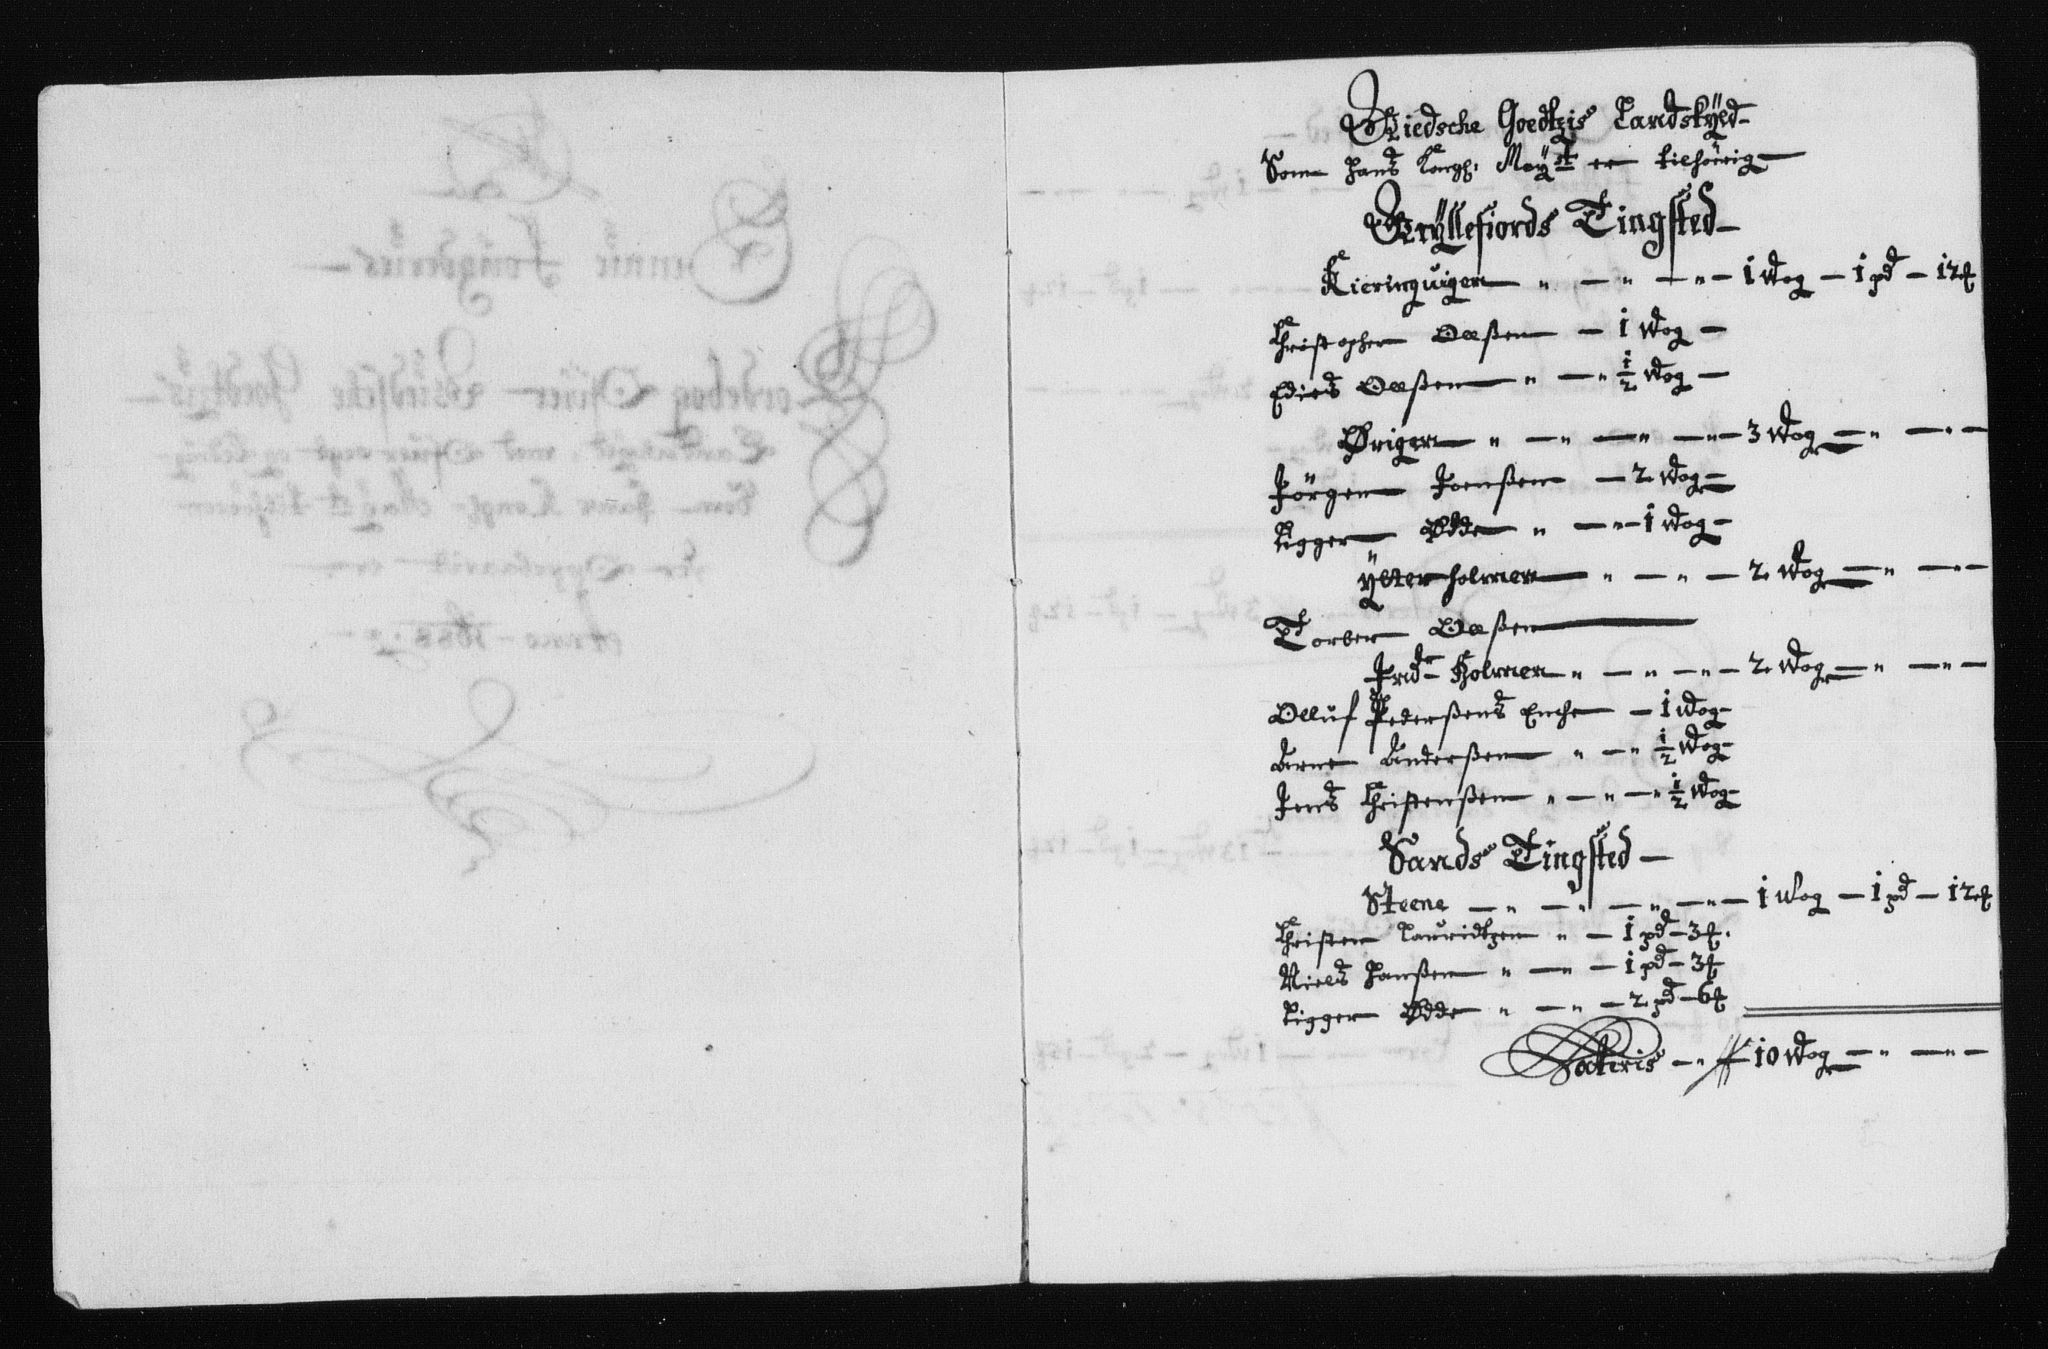 Giedsche Goedtzis Landskÿld
Som hans Kongl: Maÿst er tilhörig
Grÿllefiords Tingsted
Kieringuigen " — " — " — 1 wog — 1 pd — 12 ₰
Christopher Olßen — 1 wog —
Olßen " — " ½ wog —
Øriger " — " — " — " — 3 wog — " — " —
Jörgen Joenßen — 2 wog —
Rigger Odde " — " — 1 wog —
ÿtterholmen " — " — 2 wog — " — " —
Torber Olßen
Holmen " — " — " — 2 wog — " — " —
Olluf Pederßens Enche — 1 wog —
Arne Anderßen " — " ½ wog —
Jens Christenßen " — " — " ½ wog —
Sands Tingsted —
Steene — " — " — " — " — 1 wog — 1 pd — 12 ₰
Christen Lauridtzen " — 1 pd — 3 ₰.
Niels Hanßen " — " — 1 pd — 3 ₰
Rigger Odde " — " — 2 pd — 6 ₰
Lateris — " — 10 wog — " — " —